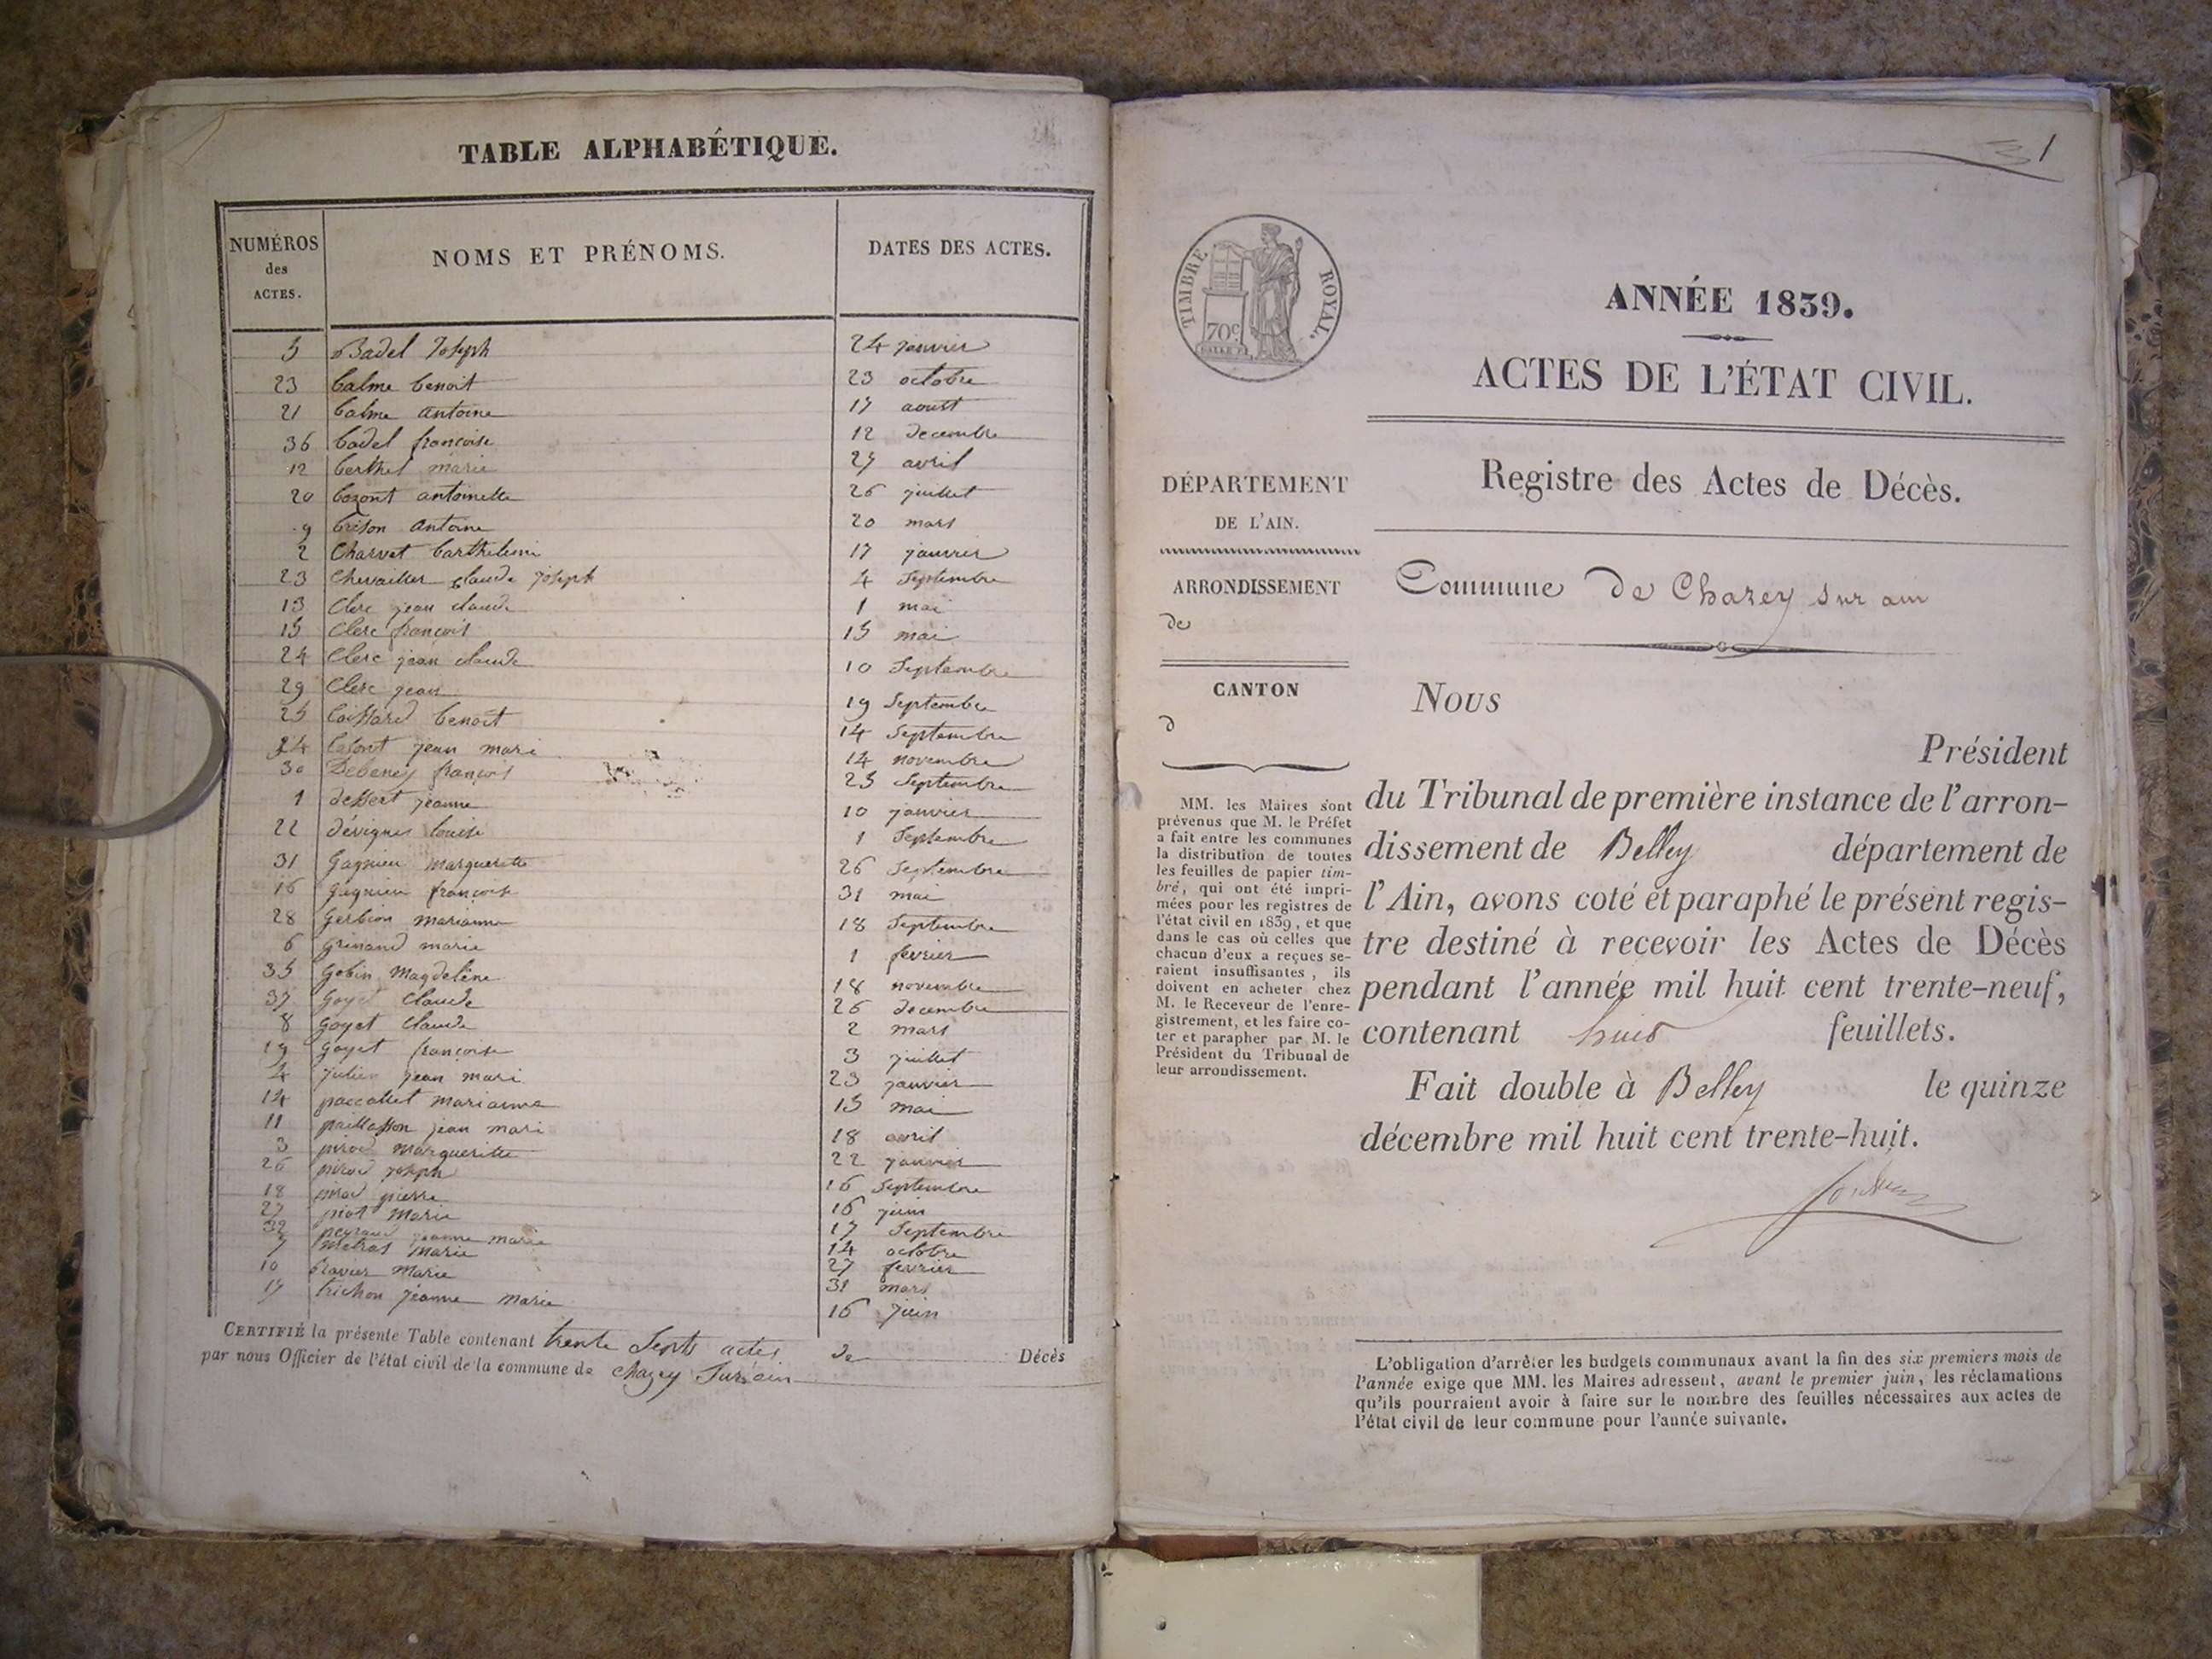 TABLE ALPHABÉTIQUE.
NUMÉROS des ACTES. NOMS ET PRÉNOMS. DATES DES ACTES.
5 Badel Joseph 24 janvier
23 balme benoit 23 octobre
21 balme antoine 17 aoust
36 badel françoise 12 decembre
12 berthet marie 27 avril
20 bozont antoinette 26 juillet
9 brison antoine 20 mars
2 Charvet barthelemi 17 janvier
23 Chevailler claude joseph 4 Septembre
13 Clerc jean claude 1 mai
15 Clerc françois 15 mai
24 Clerc jean claude 10 Septembre
29 Clerc jean 19 Septembre
25 benoit 14 Septembre
34 jean mari 14 novembre
30 Debeney françois 23 Septembre
1 dessert jeanne 10 janvier
22 dévignes louise 1 Septembre
31 Gagnieu marguerite 26 Septembre
16 gagnieu françoise 31 mai
28 gerbion marianne 18 Septembre
6 grinand marie 1 fevrier
35 gobin magdeléne 18 novembre
37 goyet claude 26 decembre
8 goyet claude 2 mars
19 goyet françoise 3 juillet
4 julien jean mari 23 janvier
14 paccallet marianne 15 mai
11 paillasson jean mari 18 avril
3 pirod marguerite 22 janvier
26 pirod joseph 16 Septembre
18 pirod pierre 16 juin
27 piot marie 17 Septembre
32 peyraud jeanne marie 14 octobre
7 métras marie 27 fevrier
10 travier marie 31 mars
17 trichon jeanne marie 16 juin
CERTIFIÉ la présente Table contenant trente Septs actes de Décès
par nous Officier de l'état civil de la commune de chazey Sur ain
31
TIMBRE ROYAL.
70c
ANNÉE 1839.
ACTES DE L'ÉTAT CIVIL.
Registre des Actes de Décès.
Commune de Chazey sur ain
DÉPARTEMENT
DE L'AIN.
ARRONDISSEMENT
de
CANTON
d
MM. les Maires sont
prévenus que M. le Préfet
a fait entre les communes
la distribution de toutes
les feuilles de papier tim-
bré, qui ont été impri-
mées pour les registres de
l'état civil en 1839, et que
dans le cas où celles que
chacun d'eux a reçues se-
raient insuffisantes, ils
doivent en acheter chez
M. le Receveur de l'enre-
gistrement, et les faire co-
ter et parapher par M. le
Président du Tribunal de
leur arrondissement.
Nous
Président
du Tribunal de première instance de l'arron-
dissement de Belley département de
l'Ain, avons coté et paraphé le présent regis-
tre destiné à recevoir les Actes de Décès
pendant l'année mil huit cent trente-neuf,
contenant huit feuillets.
Fait double à Belley le quinze
décembre mil huit cent trente-huit.
L'obligation d'arrêter les budgets communaux avant la fin des six premiers mois de
l'année exige que MM. les Maires adressent, avant le premier juin, les réclamations
qu'ils pourraient avoir à faire sur le nombre des feuilles nécessaires aux actes de
l'état civil de leur commune pour l'année suivante.